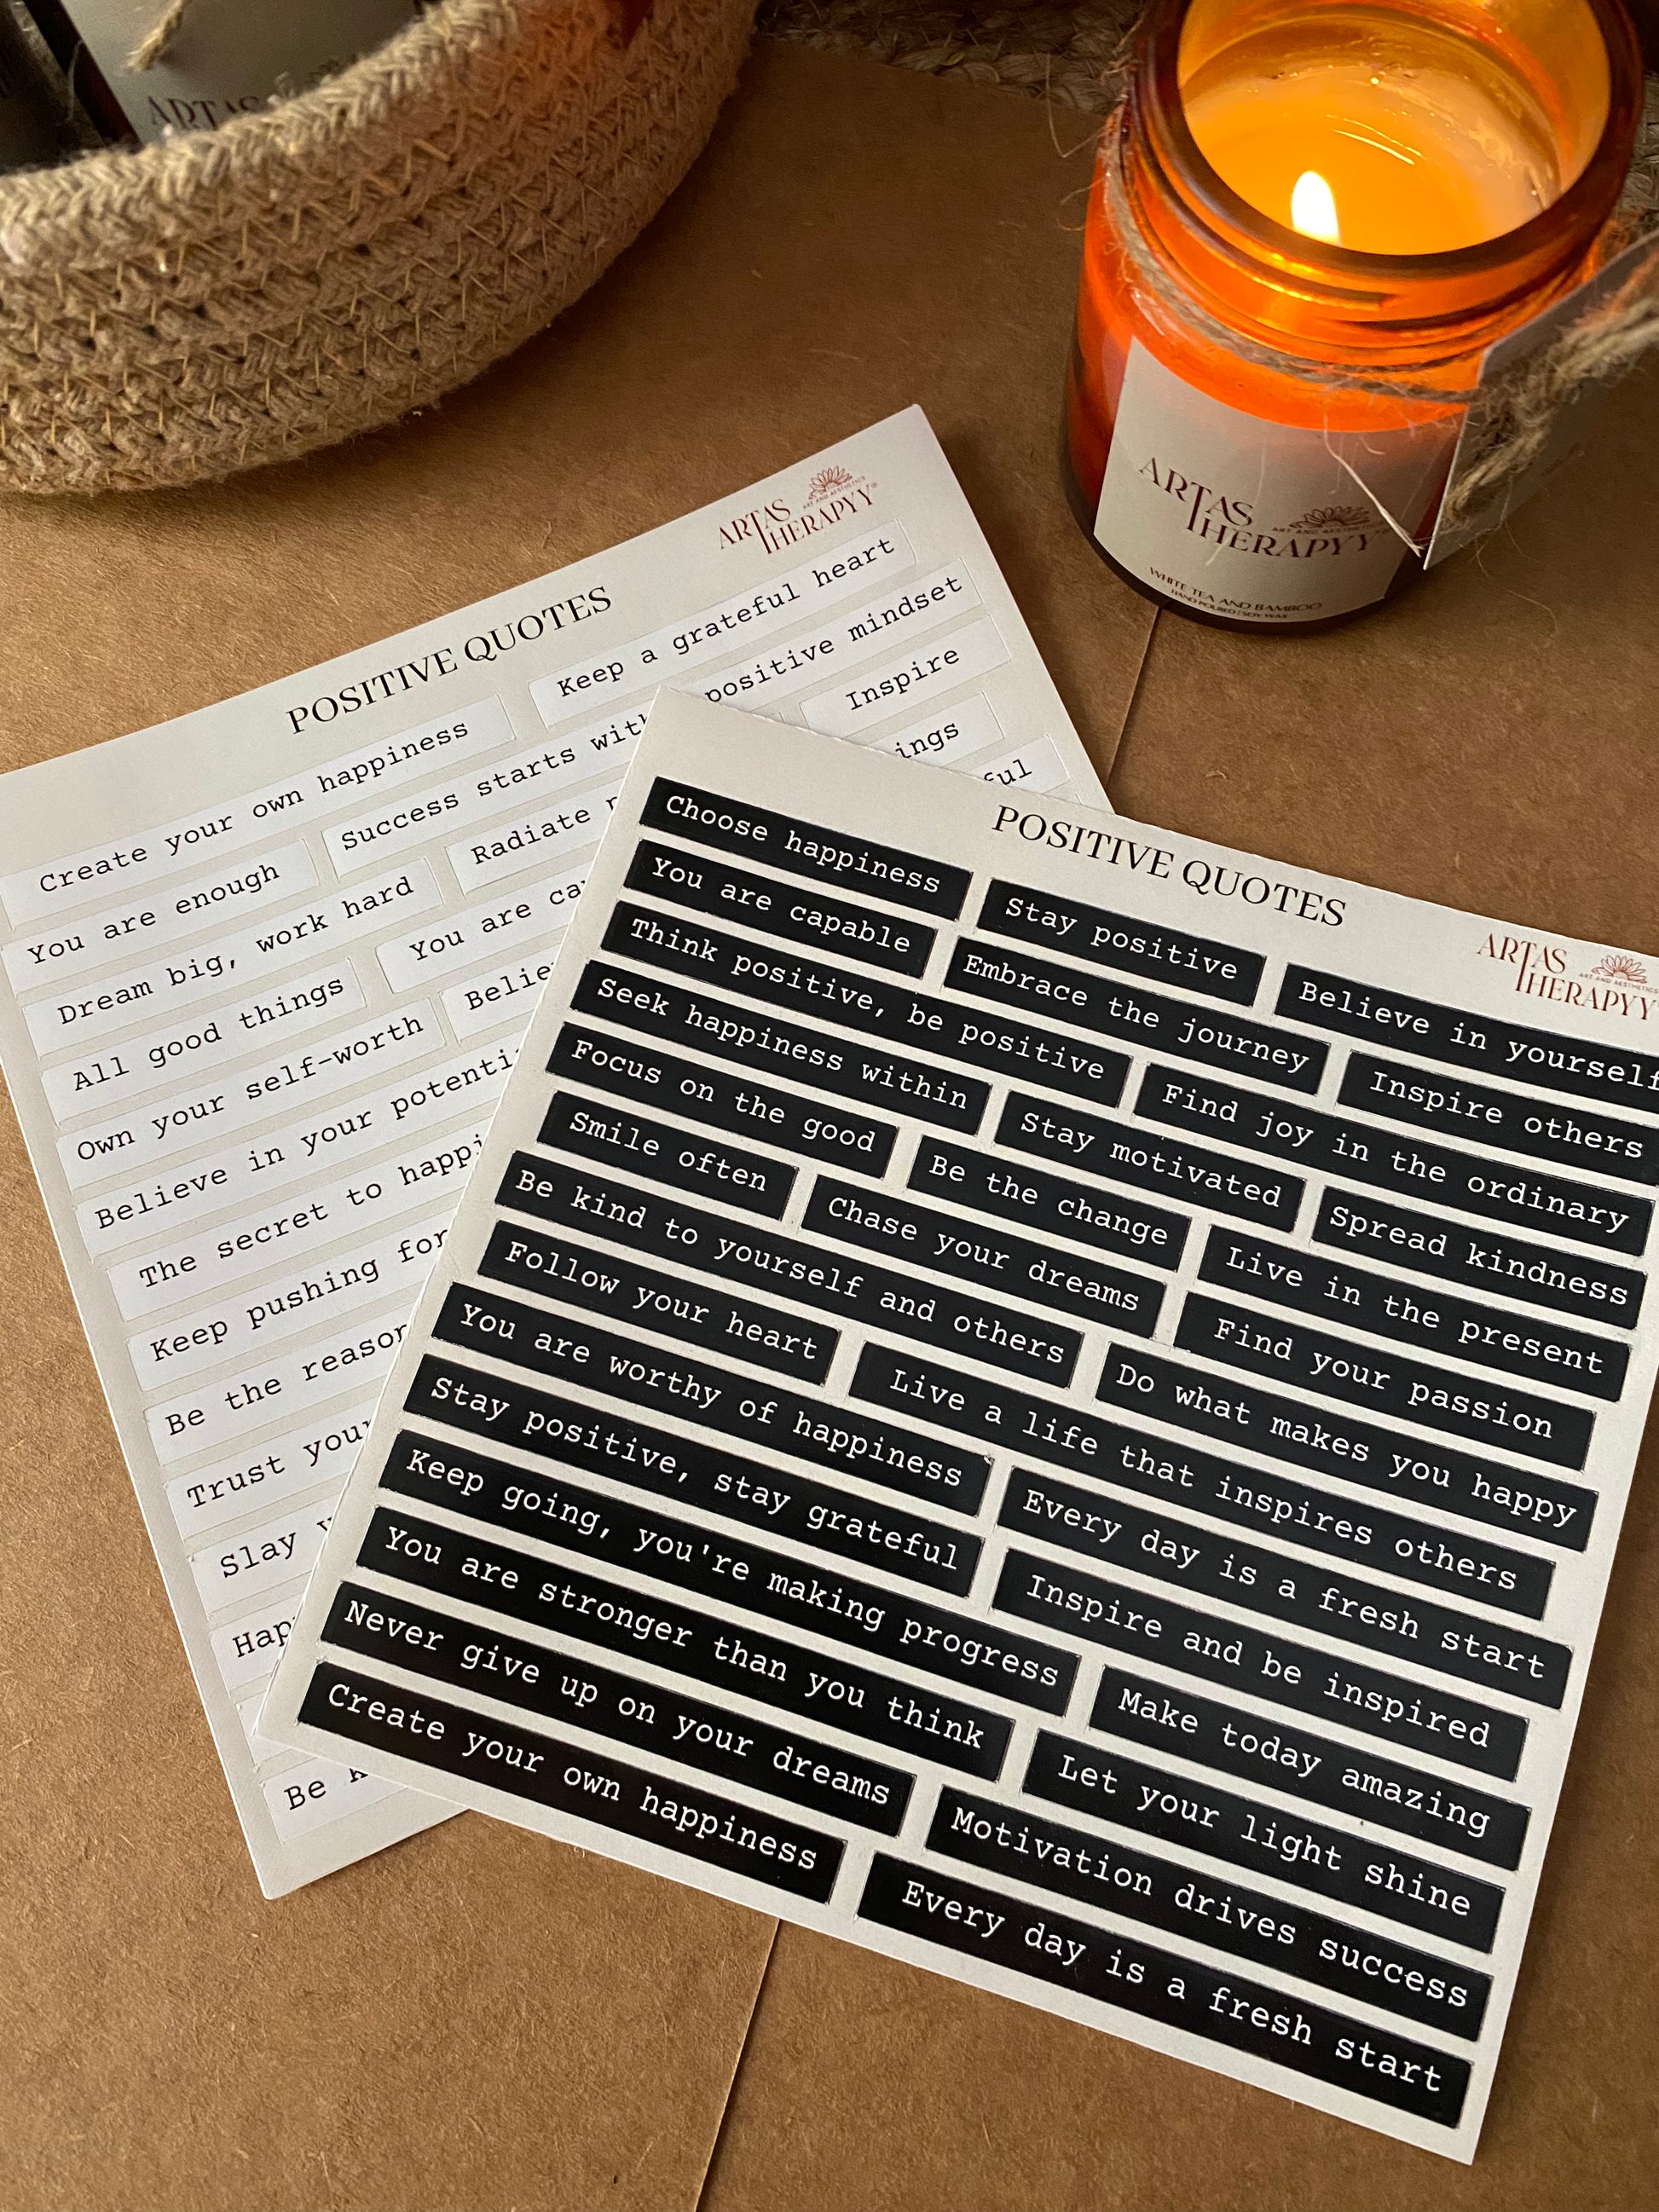 ARTAS
ARTAS
THERAPYY
ART AND AESTHETICS
WHITE TEA AND BAMBOO
HAND POURED | SOY WAX
ARTAS
THERAPYY®
ART AND AESTHETICS
POSITIVE QUOTES
Create your own happiness
Keep a grateful heart
You are enough
Success starts with positive mindset
Dream big, work hard
Radiate
Inspire
All good things
You are
Own your self-worth
Believe in your
The secret to
Keep pushing
Be the
Trust
Slay
Be
POSITIVE QUOTES
ARTAS
THERAPYY
ART AND AESTHETICS
Choose happiness
Stay positive
Believe in yourself
You are capable
Embrace the journey
Inspire others
Think positive, be positive
Find joy in the ordinary
Seek happiness within
Stay motivated
Spread kindness
Focus on the good
Be the change
Live in the present
Smile often
Chase your dreams
Find your passion
Be kind to yourself and others
Do what makes you happy
Follow your heart
Live a life that inspires others
You are worthy of happiness
Every day is a fresh start
Stay positive, stay grateful
Inspire and be inspired
Keep going, you're making progress
Make today amazing
You are stronger than you think
Let your light shine
Never give up on your dreams
Motivation drives success
Create your own happiness
Every day is a fresh start